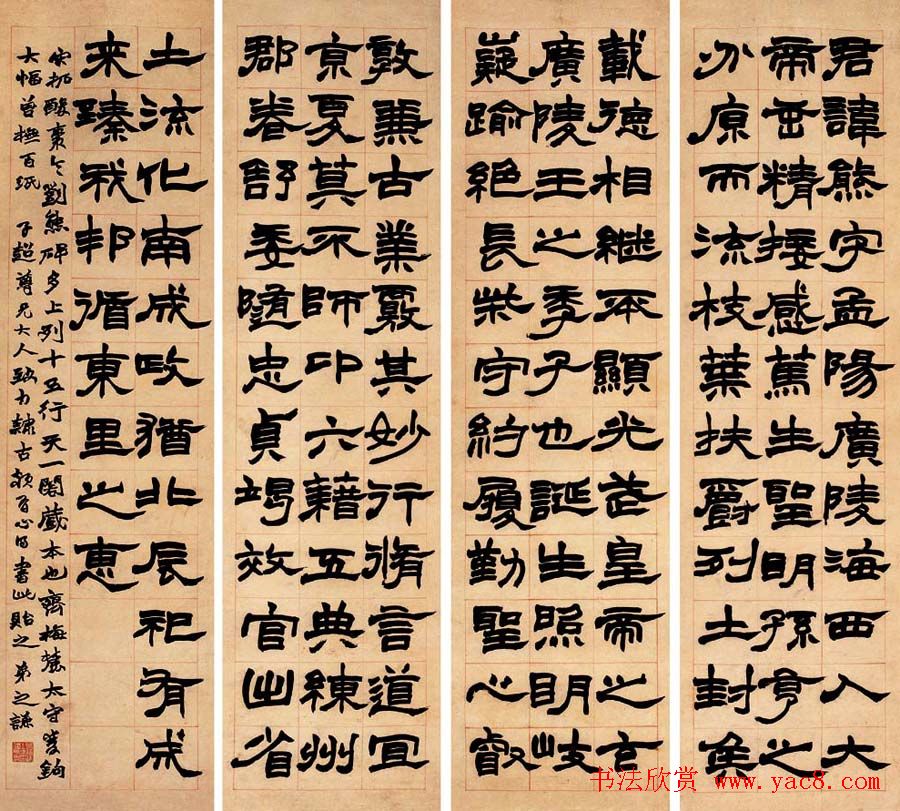 君諱熊字孟陽廣陵海西人大
帝垂精接感篤生聖明孫亨之
分原而流枝葉扶爵列土封侯
載德相継丕顯光武皇帝之玄
廣陵王之季子也誕生照明岐
嶷踰絕長柴守約履勤聖心叡
敦兼古業覈其妙行脩言道宜
京夏莫不師卬六藉五典練州
郡卷舒委隨忠貞竭效官出省
土流化南成政猶北辰祀有成
来臻我邦循東里之惠
宋拓酸棗令劉熊碑多上列十五行天一閣蔵本也齊梅麓太守雙鉤
大幅曾橅百紙 子超尊兄大人致力隸古頗有心得書此貽之 弟之謙
书法欣赏 www.yac8.com